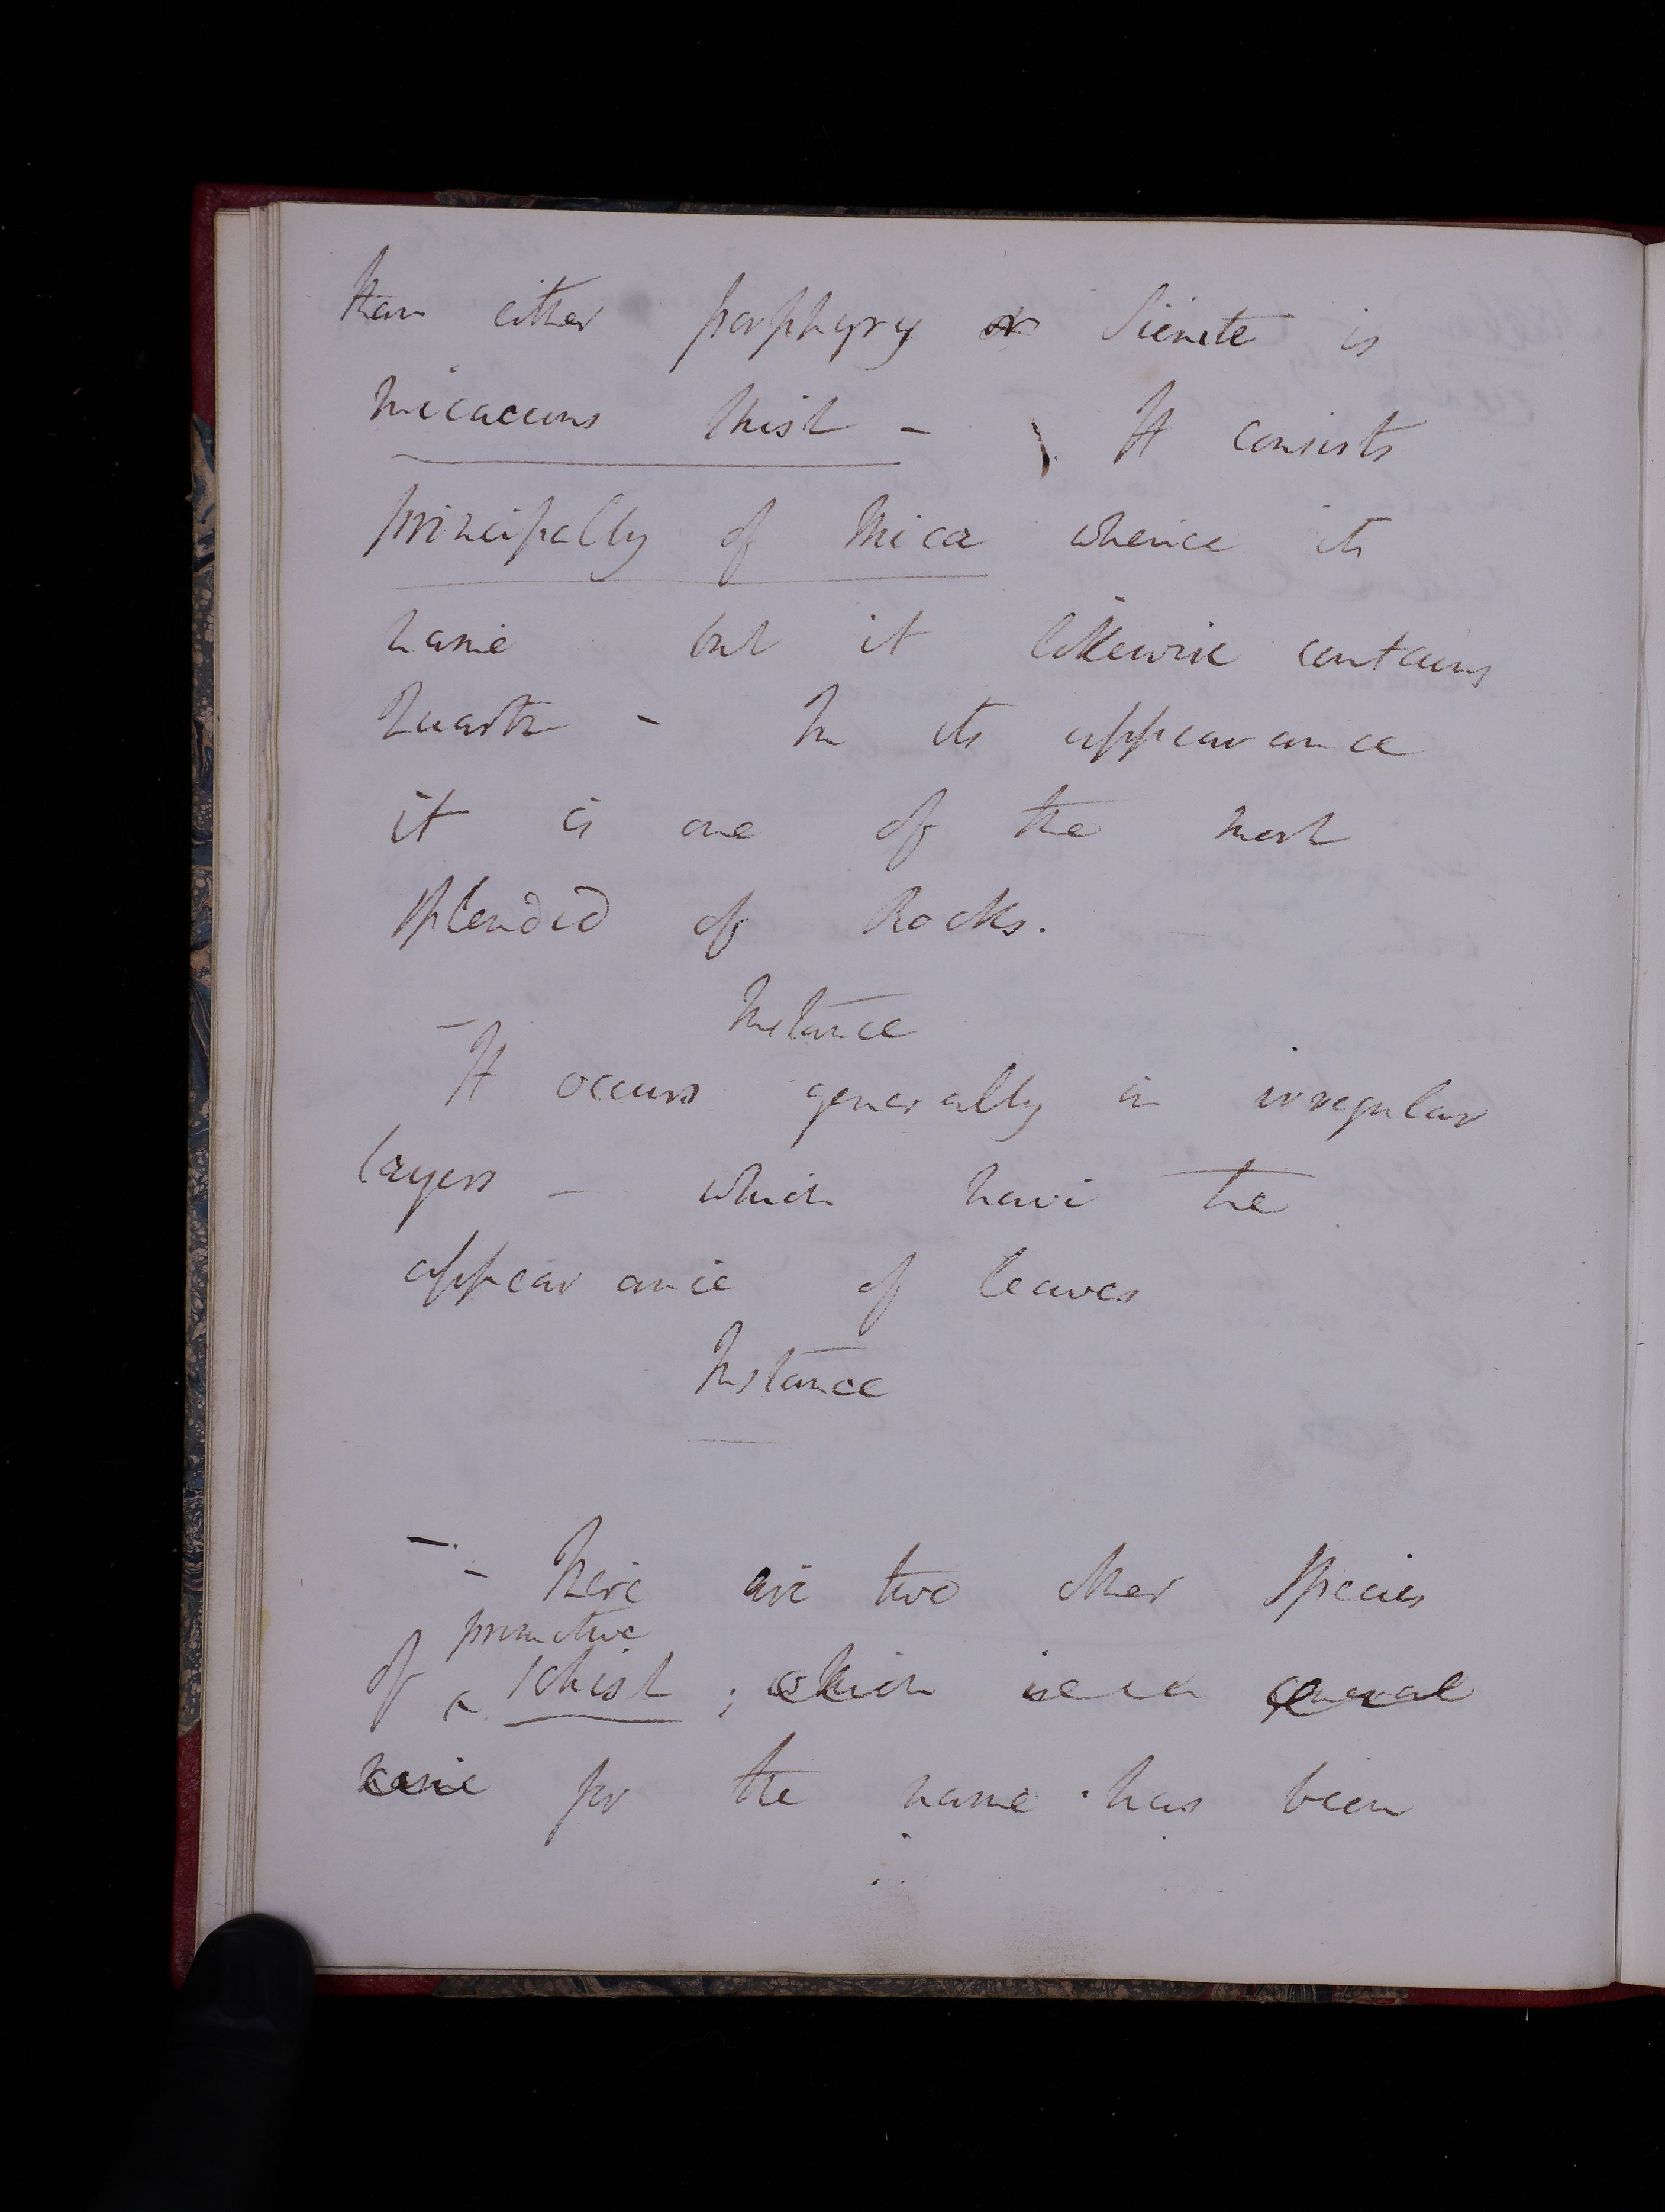 than either porphyry or Sienite is
micaceous shist – It consists
principally of Mica whence its
name but it likewise contains
Quartz – In its appearance
it is one of the most
splendid of Rocks.
Instance
– It occurs generally in irregular
layers – which have the
appearance of leaves
Instance
– – There are two other species
primitive
of ^ schist ; which is a general
name for the name has been